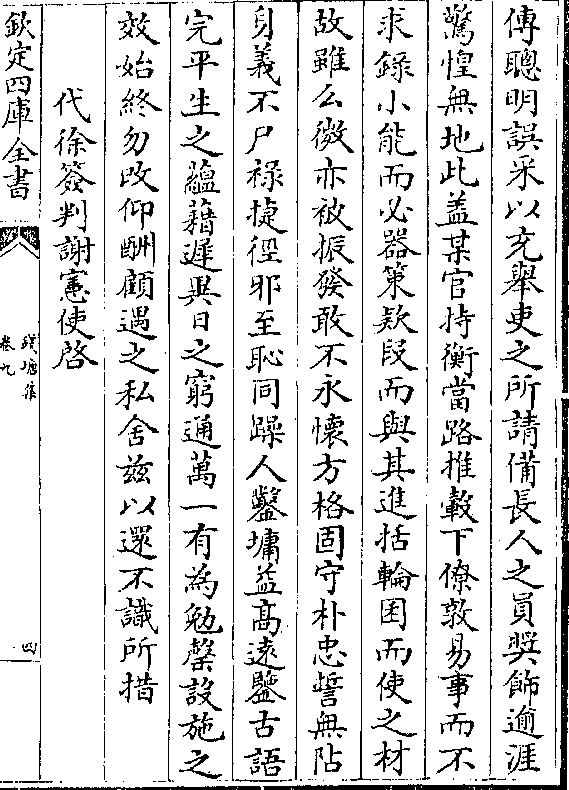 傅聰明誤采以充舉吏之所請備長人之員奨飾逾涯
驚惶無地此盖某官持衡當路推轂下僚敦易事而不
求錄小能而必器策欵段而與其進括輪囷而使之材
故雖么微亦被振發敢不永懐方格固守朴忠誓無阽
身義不尸祿捷徑邪至恥同躁人鑿墉益髙遠鑒古語
完平生之藴藉遲異日之窮通萬一有為勉罄設施之
效始終勿改仰酬顧遇之私舍兹以還不識所措
代徐簽判謝憲使啓
欽定四庫全書
卷九
四